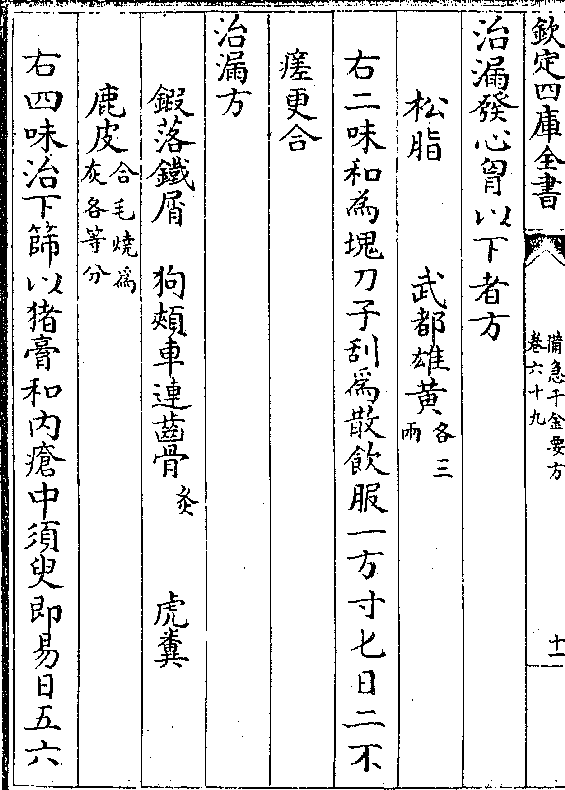 欽定四庫全書
備急千金要方
卷六十九
十一
治漏發心胷以下者方
松脂 武都雄黃各三兩
右二味和為塊刀子刮為散飲服一方寸七日二不
瘥更合
治漏方
鍜落鐵屑 狗頰車連齒骨炙 虎糞
鹿皮合毛燒為灰各等分
右四味治下篩以猪膏和內瘡中須臾即易日五六